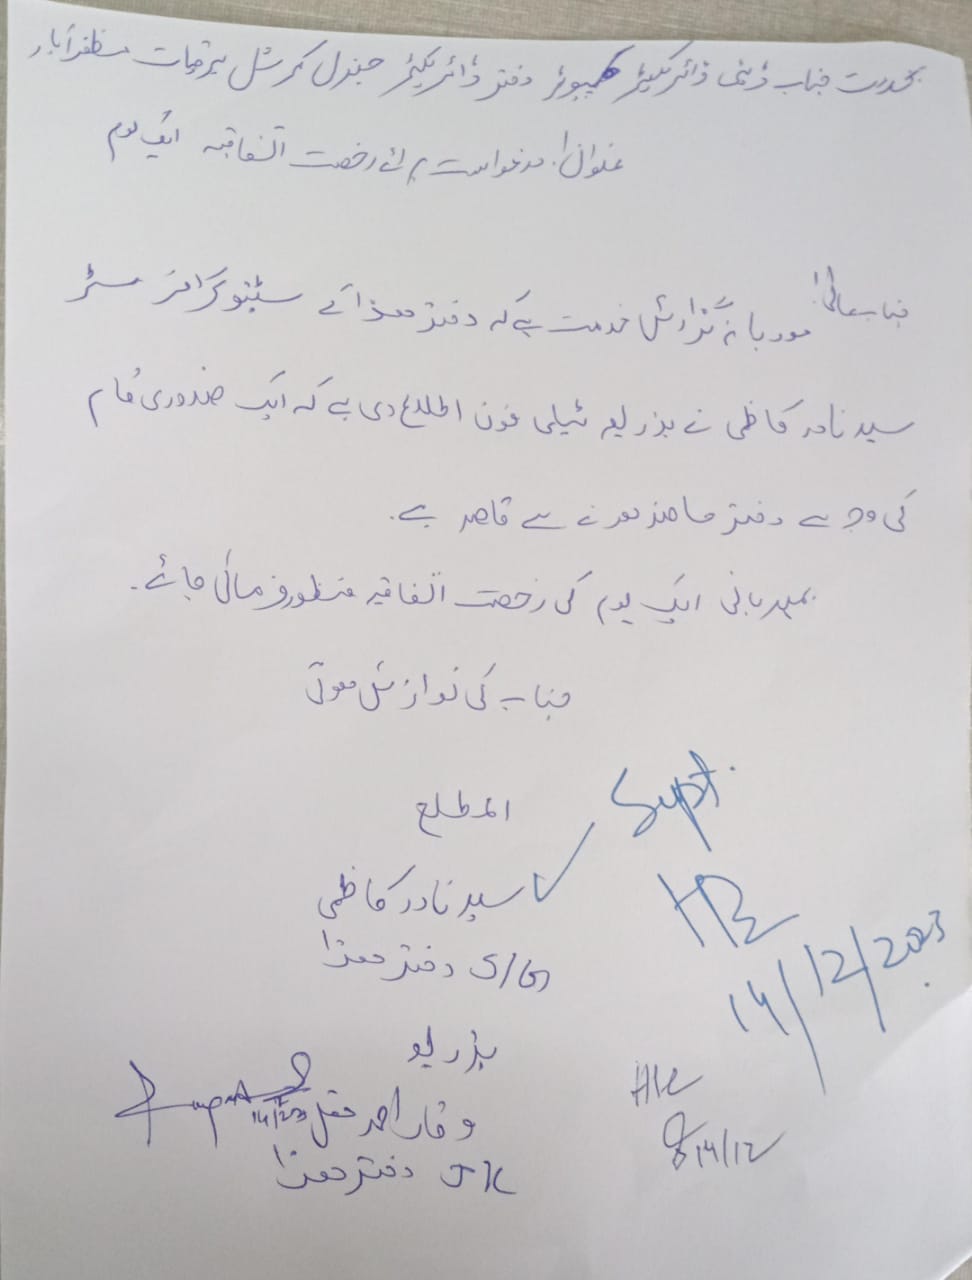 بخدمت جناب ڈپٹی ڈائریکٹر کمپیوٹر دفتر ڈائریکٹر جنرل کمرشل برقیات مظفرآباد
عنوان: درخواست برائے رخصت اتفاقیہ ایک یوم
جناب عالی!
مودبانہ گزارش خدمت ہے کہ دفتر ھذا کے سٹینوگرافر مسٹر
سید نادر کاظمی نے بذریعہ ٹیلی فون اطلاع دی ہے کہ ایک ضروری کام
کی وجہ سے دفتر حاضر ہونے سے قاصر ہے۔
بمہربانی ایک یوم کی رخصت اتفاقیہ منظور فرمائی جائے۔
جناب کی نوازش ہوگی
المطلع
Supt.
سید نادر کاظمی
S/G دفتر ھذا
14/12/2023
بذریعہ
وقار احمد مغل
14/12
JK دفتر ھذا